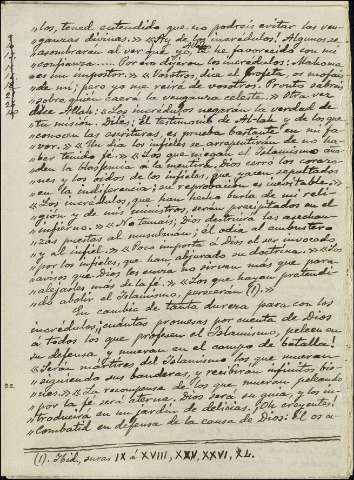 "los, tened entendido que no podreis evitar las ven-
"ganzas divinas." "¡Ay de los incrédulos! Algunos se
"asombrarán al ver que yo, Allah, te he favorecido con mi
"confianza..... Por eso dijeron los incrédulos: Mahoma
"es un impostor." "Vosotros, dice el Profeta, os mofais
"de mi; pero yo me reiré de vosotros. Pronto sabréis
"sobre quien caerá la venganza celeste." Otra vez
dice Allah: "Los incrédulos negarán la verdad de
"tu misión. Diles: El testimonio de Al-lah y de los que
"conocen las escrituras, es prueba bastante en mi fa-
"vor." "Un dia los infieles se arrepentirán de no ha-
"ber tenido fé." "Los que niegan el Islamismo aña-
"den la blasfemia á la mentira. Dios cerró los corazo-
"nes y los oidos de los infieles, que yacen sepultados
"en la indiferencia; su reprobación es inevitable."
"Los incrédulos, que han hecho burla de mi reli-
"gión y de mis ministros, serán precipitados en el
"infierno." "No temais; Dios destruirá las asechan-
"zas puestas al musulmán; él odia al embustero
"y al infiel." "Poco importa á Dios el ser invocado
"por los infieles, que han abjurado su doctrina." "Los
"avisos que Dios les envia no sirven mas que para
"alejarlos más de la fé." "Los que hayan pretendi-
"do abolir el Islamismo, perecerán (1)."
En cambio de tanta dureza para con los
incrédulos, ¡cuántas promesas por cuenta de Dios
á todos los que profesen el Islamismo, peleen en
su defensa, y mueran en el campo de batalla!
"Serán mártires del Islamismo los que mueran
"siguiendo sus banderas, y recibirán infinitos bie-
"nes." "La recompensa de los que mueran peleando
"por la fé será eterna. Dios será su guia, y los in-
"troducirá en un jardin de delicias. ¡Oh creyentes!
"Combatid en defensa de la causa de Dios: El os a-
(1). Ibid, suras IX á XVIII, XXV, XXVI, XL.